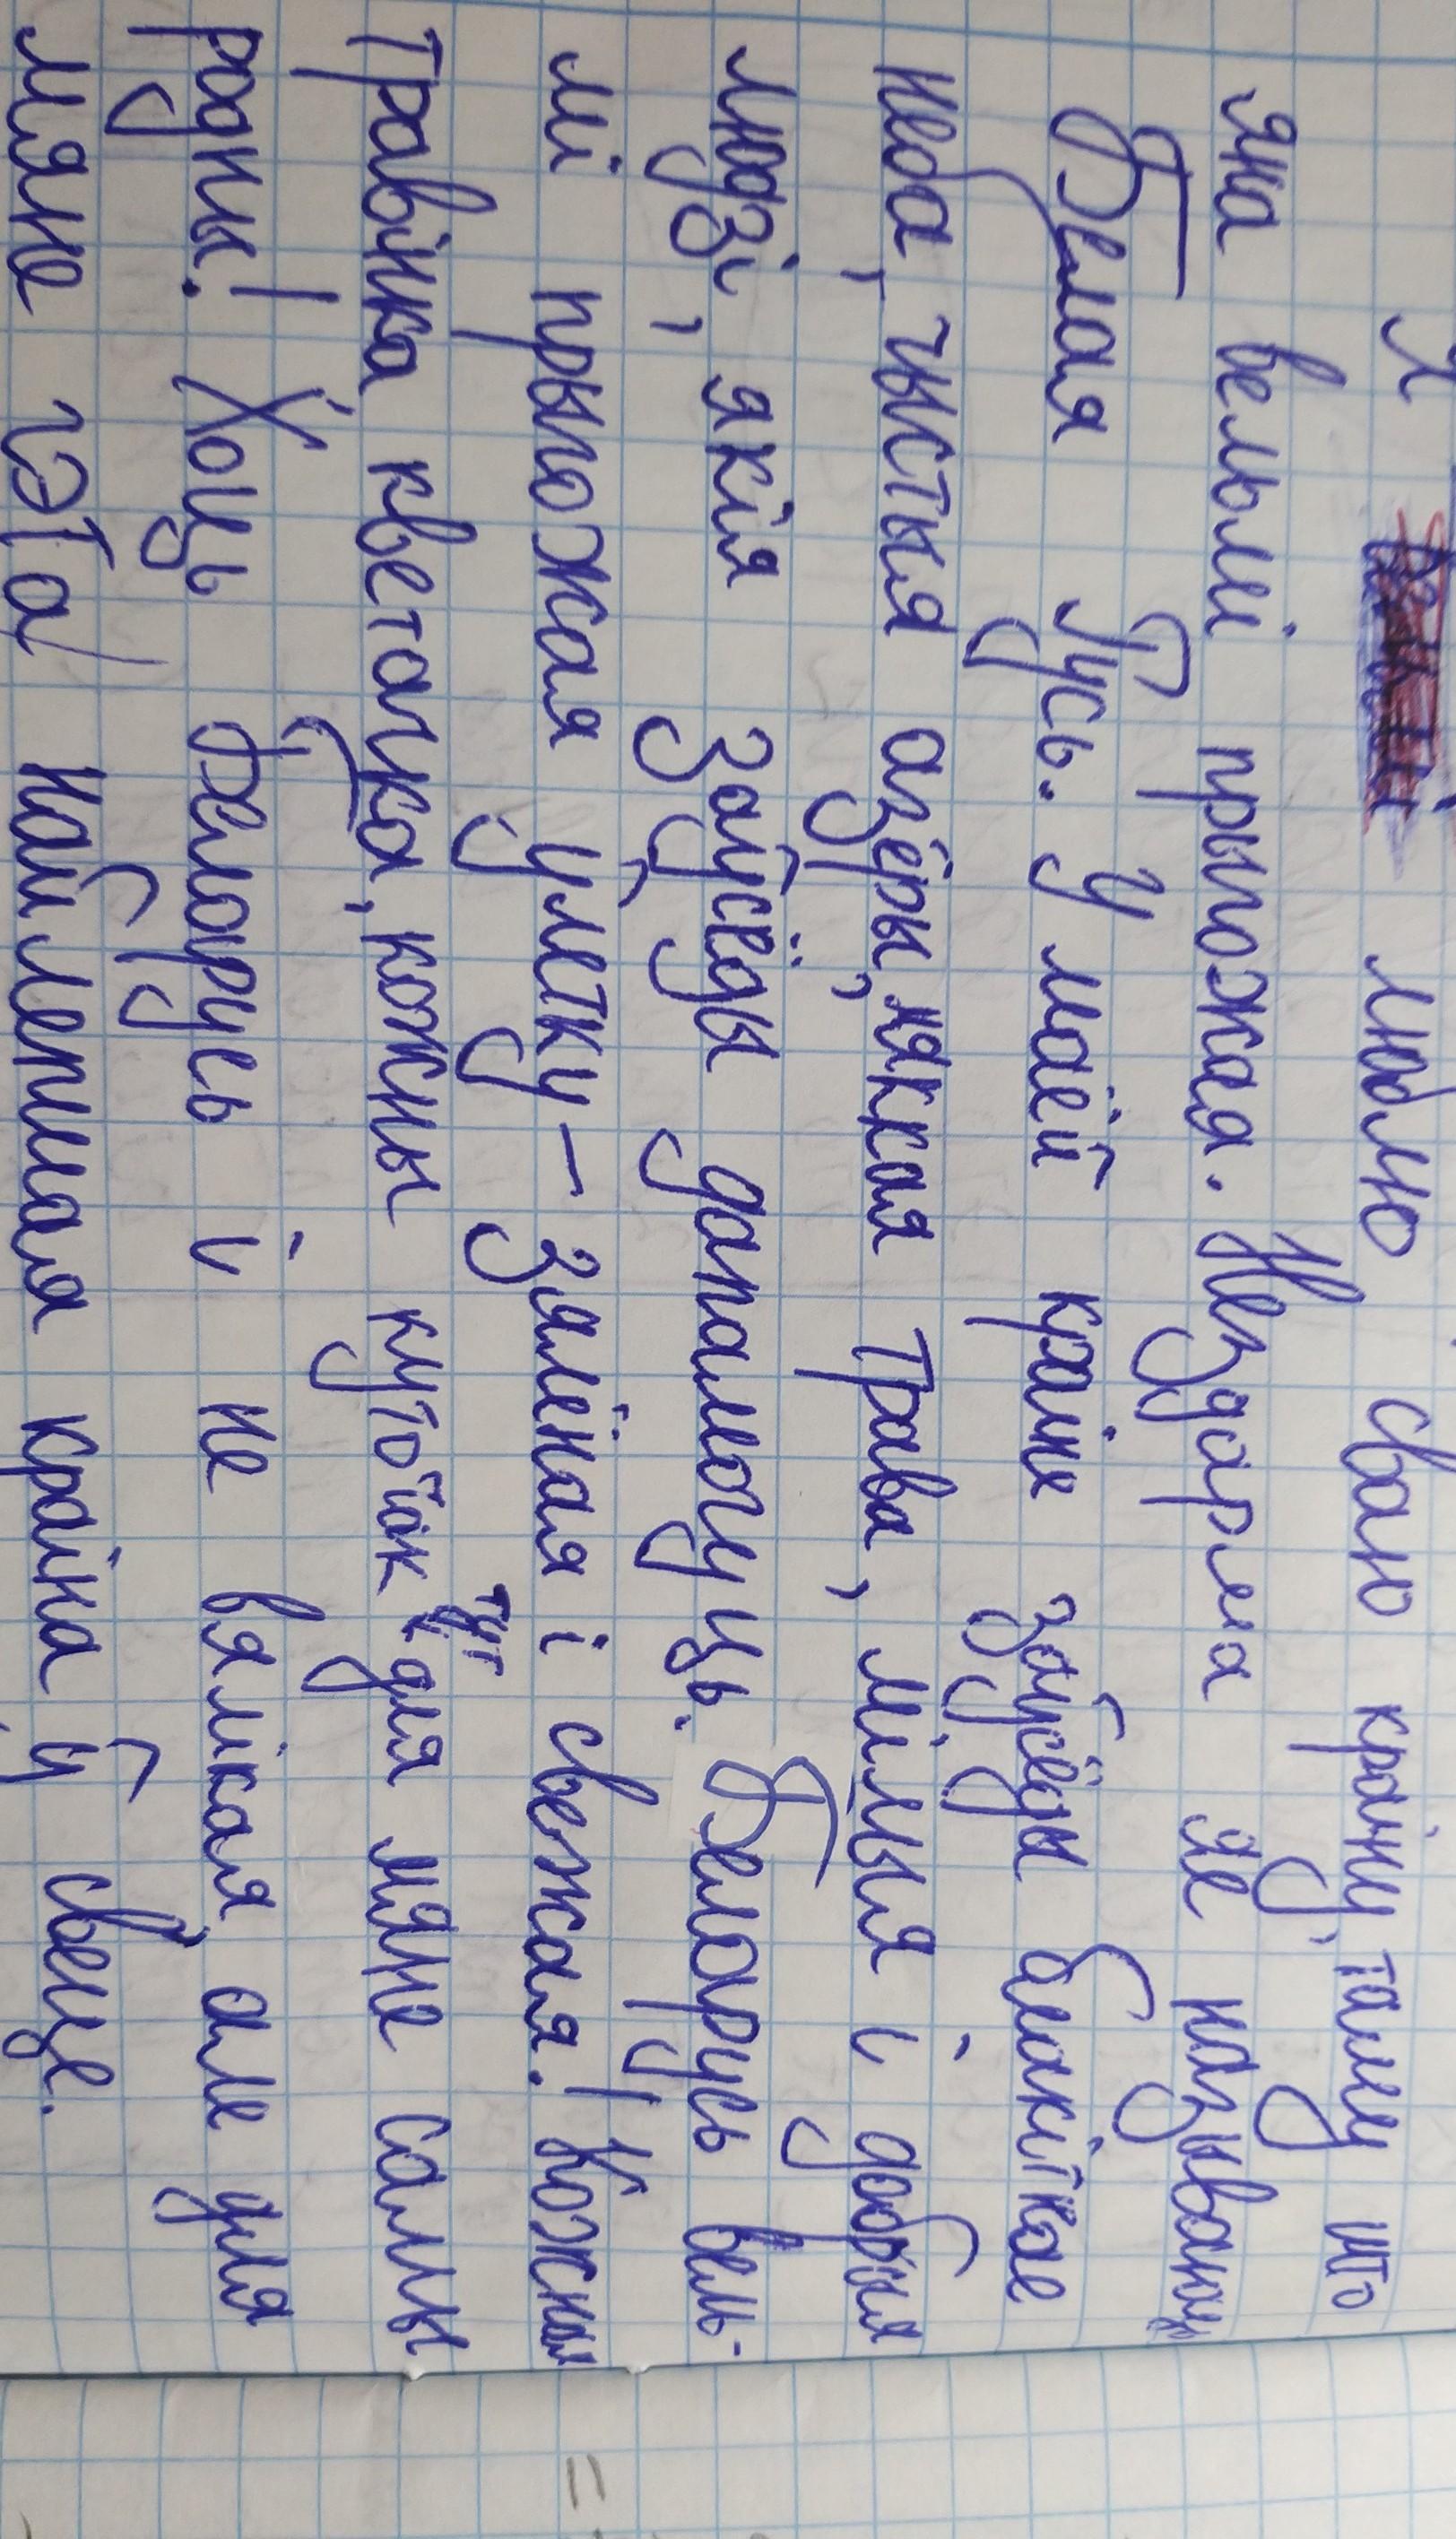 Я люблю сваю краіну, таму што
яна вельмі прыгожая. Нездарма яе называюць
Белая Русь. У маёй краіне заўсёды блакітнае
неба, чыстыя азёры, мяккая трава, мілыя і добрыя
людзі, якія заўсёды дапамогуць. Беларусь вель-
мі прыгожая улетку – зялёная і свежая! Кожная
травінка кветачка, кожны куточак тут для мяне самы
родны! Хоць Беларусь і не вялікая, але для
мяне гэта найлепшая краіна ў свеце.